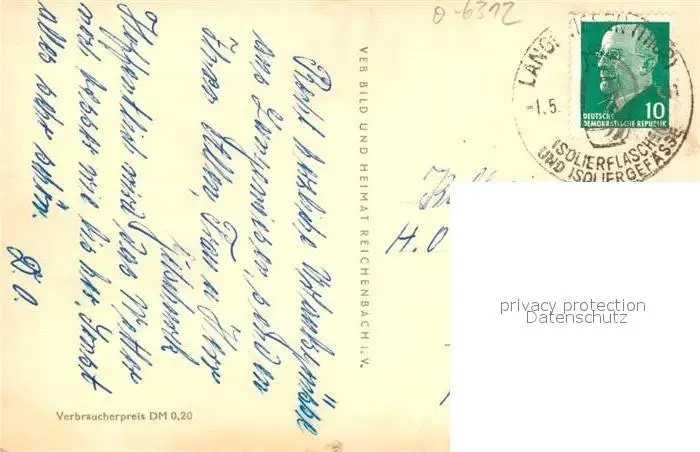 Recht herzliche Urlaubsgrüße
aus Langewiesen, senden
Ihnen allen, Frau u. Herr
Hoffentlich wird das Wetter
noch besser wie bis her, sonst
alles sehr schön.
D. O.
Verbraucherpreis DM 0,20
VEB BILD UND HEIMAT REICHENBACH i. V.
0-6312
-1.5.
ISOLIERFLASCHEN
UND ISOLIERGEFÄSSE
DEUTSCHE
DEMOKRATISCHE REPUBLIK
10
H. O
privacy protection
Datenschutz